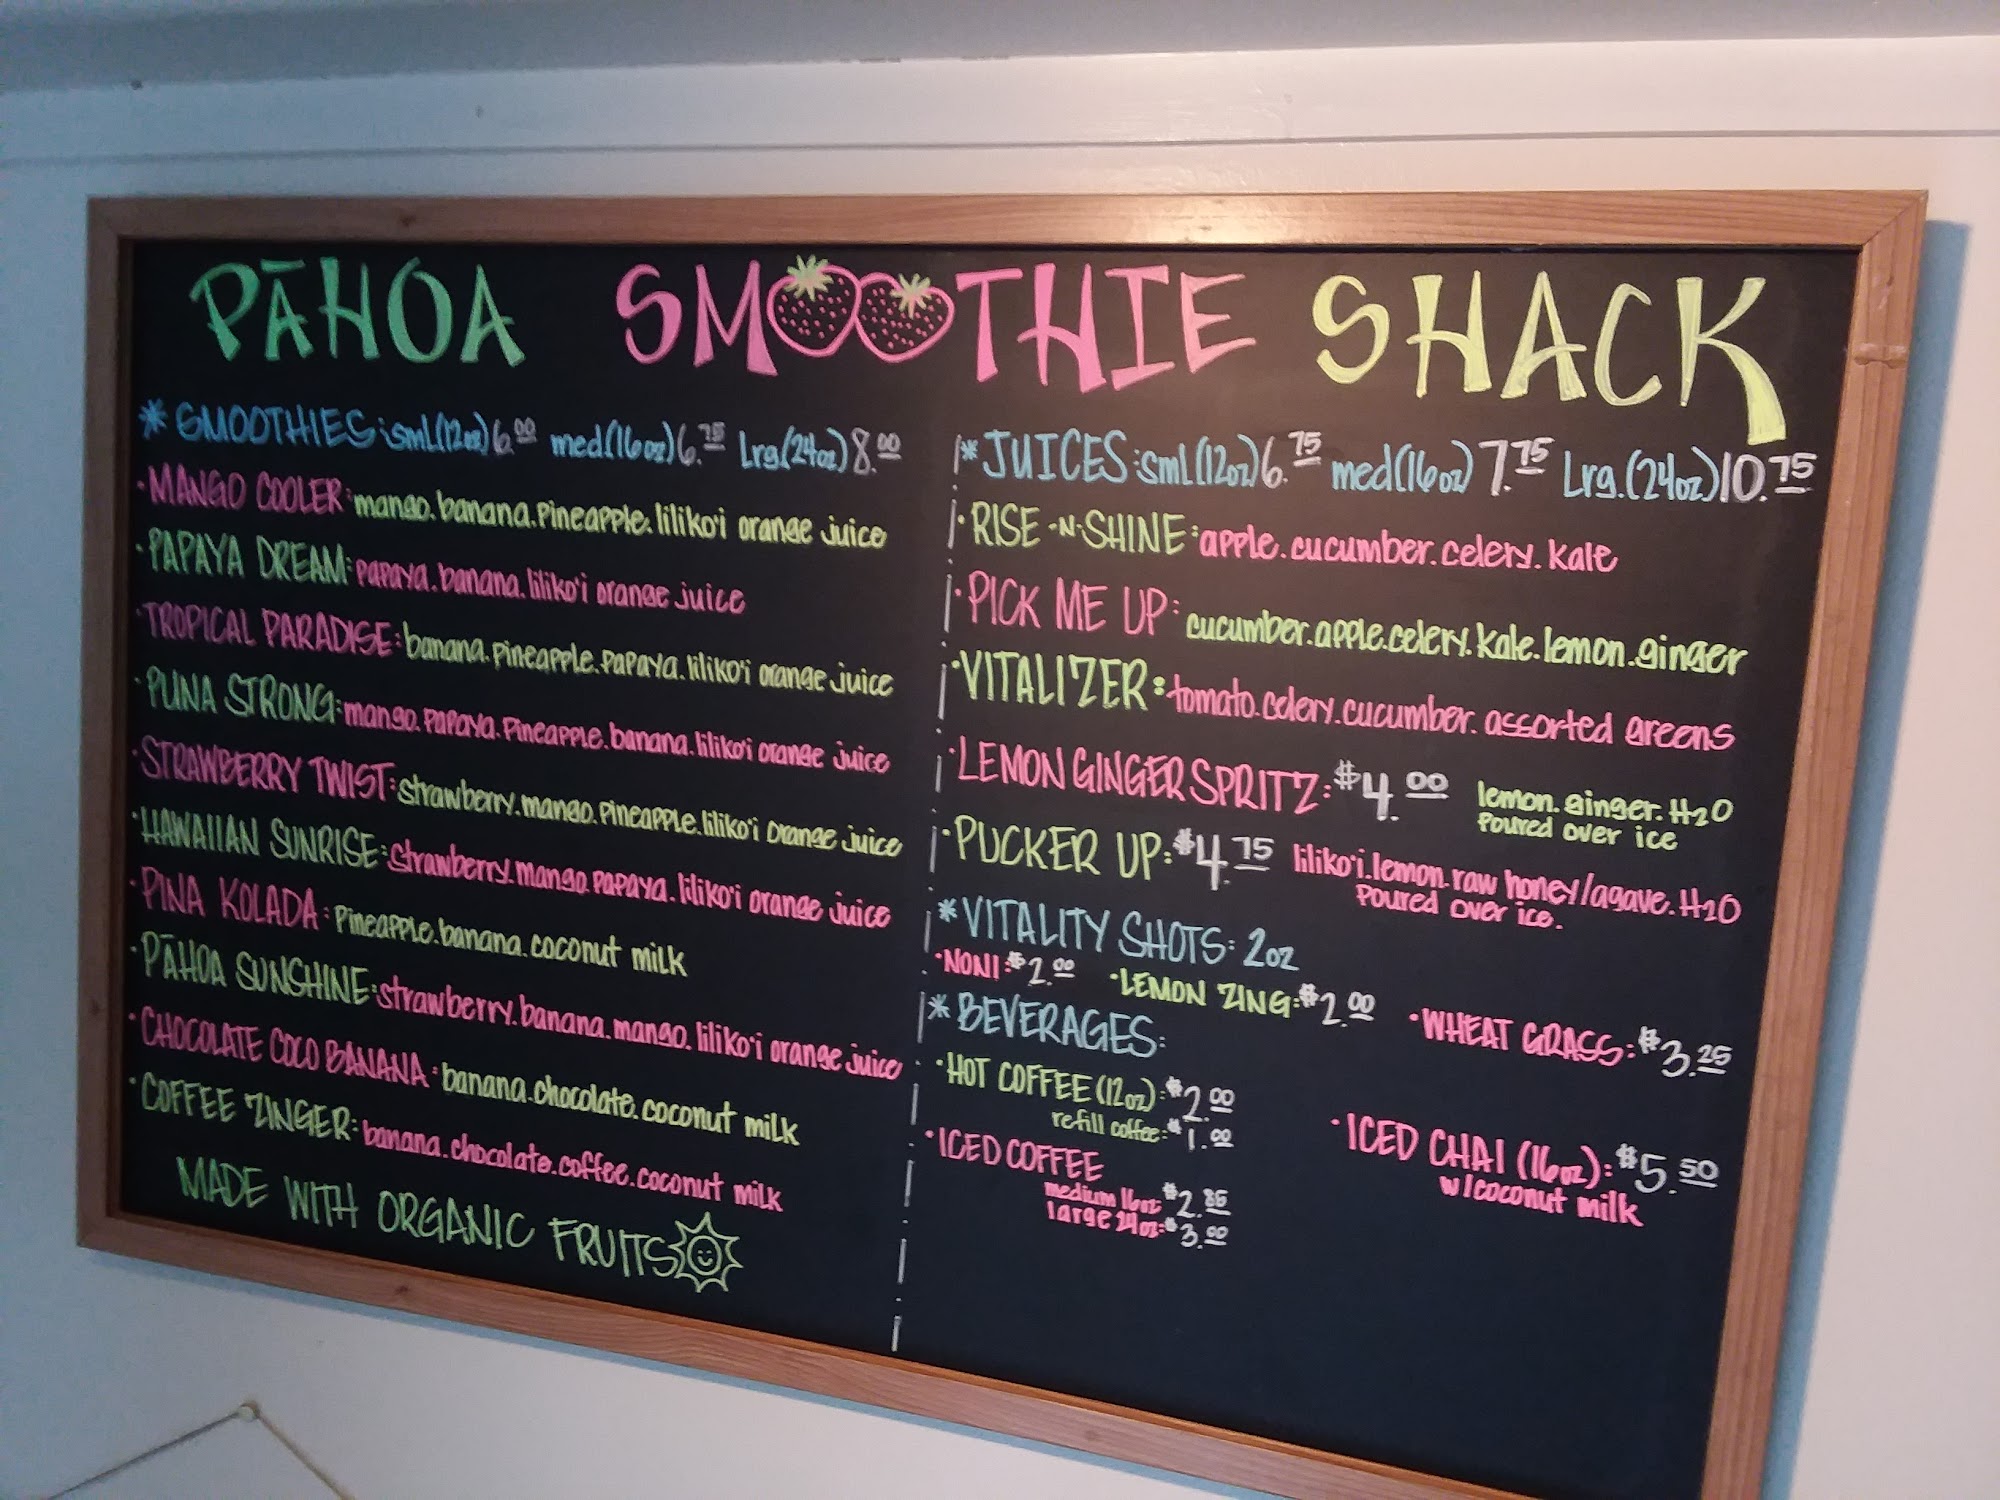 PĀHOA SMOOTHIE SHACK
* SMOOTHIES: sml(12oz)6.00 med(16oz)6.75 Lrg(24oz)8.00
· MANGO COOLER: mango.banana.pineapple.liliko'i orange juice
· PAPAYA DREAM: papaya.banana.liliko'i orange juice
· TROPICAL PARADISE: banana.pineapple.papaya.liliko'i orange juice
· PUNA STRONG: mango.papaya.pineapple.banana.liliko'i orange juice
· STRAWBERRY TWIST: strawberry.mango.pineapple.liliko'i orange juice
· HAWAIIAN SUNRISE: strawberry.mango.papaya.liliko'i orange juice
· PINA KOLADA: pineapple.banana.coconut milk
· PĀHOA SUNSHINE: strawberry.banana.mango.liliko'i orange juice
· CHOCOLATE COCO BANANA: banana.chocolate.coconut milk
· COFFEE ZINGER: banana.chocolate.coffee.coconut milk
MADE WITH ORGANIC FRUITS
* JUICES: sml(12oz)6.75 med(16oz)7.75 Lrg.(24oz)10.75
· RISE-N-SHINE: apple.cucumber.celery.kale
· PICK ME UP: cucumber.apple.celery.kale.lemon.ginger
· VITALIZER: tomato.celery.cucumber.assorted greens
· LEMON GINGER SPRITZ: $4.00 lemon.ginger.H2O
poured over ice
· PUCKER UP: $4.75 liliko'i.lemon.raw honey/agave.H2O
poured over ice.
* VITALITY SHOTS: 2oz
· NONI: $2.00 · LEMON ZING: $2.00 · WHEAT GRASS: $3.25
* BEVERAGES:
· HOT COFFEE (12oz): $2.00
refill coffee: $1.00
· ICED COFFEE
medium 16oz: $2.85
large 24oz: $3.00
· ICED CHAI (16oz): $5.50
w/coconut milk